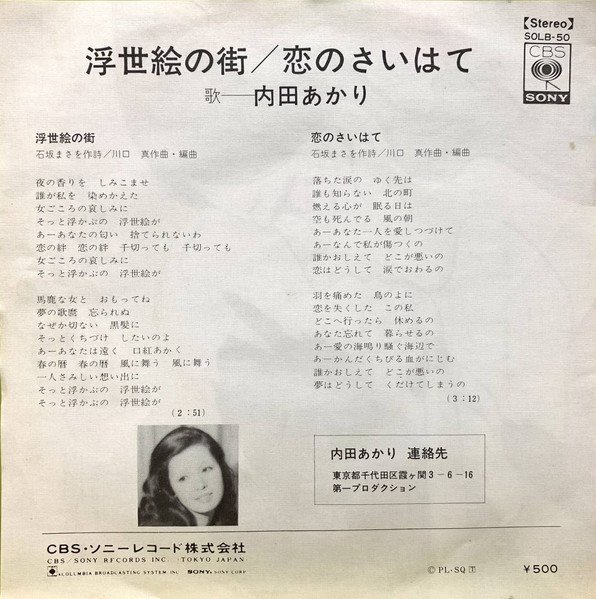 【Stereo】
SOLB-50
CBS
SONY
浮世絵の街/恋のさいはて
歌──内田あかり
浮世絵の街
石坂まさを作詩/川口 真作曲・編曲
夜の香りを しみこませ
誰が私を 染めかえた
女ごころの哀しみに
そっと浮かぶの 浮世絵が
あーあなたの匂い 捨てられないわ
恋の絆 恋の絆 千切っても 千切っても
女ごころの哀しみに
そっと浮かぶの 浮世絵が
馬鹿な女と おもってね
夢の歌麿 忘られぬ
なぜか切ない 黒髪に
そっとくちづけ したいのよ
あーあなたは遠く 口紅あかく
春の暦 春の暦 風に舞う 風に舞う
一人さみしい想い出に
そっと浮かぶの 浮世絵が
そっと浮かぶの 浮世絵が
(2:51)
恋のさいはて
石坂まさを作詩/川口 真作曲・編曲
落ちた涙の ゆく先は
誰も知らない 北の町
燃える心が 眠る日は
空も死んでる 風の朝
あーあなた一人を愛しつづけて
あーなんで私が傷つくの
誰かおしえて どこが悪いの
恋はどうして 涙でおわるの
羽を痛めた 鳥のよに
恋を失くした この私
どこへ行ったら 休めるの
あなた忘れて 暮らせるの
あー愛の海鳴り騒ぐ海辺で
あーかんだくちびる血がにじむ
誰かおしえて どこが悪いの
夢はどうして くだけてしまうの
(3:12)
内田あかり 連絡先
東京都千代田区霞ヶ関3-6-16
第一プロダクション
CBS・ソニーレコード株式会社
CBS/SONY RECORDS INC. TOKYO JAPAN
COLUMBIA BROADCASTING SYSTEM INC. SONY, SONY CORP
Ⓟ PL・SQ Ⓣ
¥500